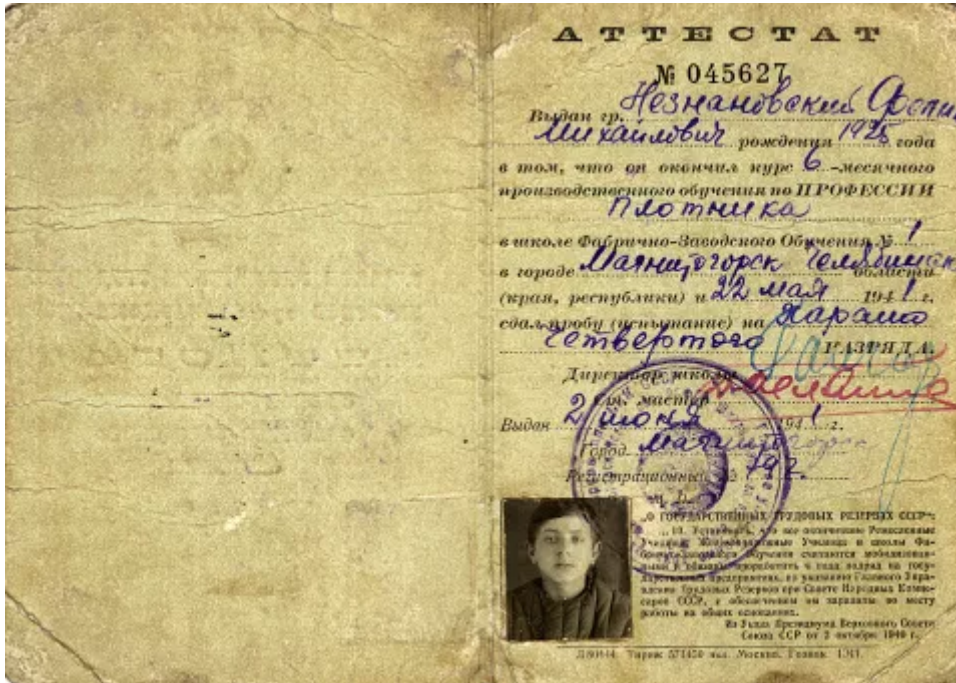 АТТЕСТАТ
№ 045627
Выдан гр. Незнановский
Михайлович рождения 1925 года
в том, что он окончил курс 6-месячного
производственного обучения по ПРОФЕССИИ
Плотника
в школе Фабрично-Заводского Обучения № 1
в городе Магнитогорск Челябинск области
(края, республики) и 22 мая 1941 г.
сдал пробу (испытание) на Харашо
Четвертого РАЗРЯДА.
Директор школы
Ст. мастер
Выдан 2 июня 1941 г.
Город Магнитогорск
Регистрационный № 792.
„О ГОСУДАРСТВЕННЫХ ТРУДОВЫХ РЕЗЕРВАХ СССР“:
„10. Установить, что все окончившие Ремесленные
Училища, Железнодорожные Училища и школы Фа-
брично-Заводского Обучения считаются мобилизован-
ными и обязаны проработать 4 года подряд на госу-
дарственных предприятиях, по указанию Главного Упра-
вления Трудовых Резервов при Совете Народных Комис-
саров СССР, с обеспечением им зарплаты по месту
работы на общих основаниях.
Из Указа Президиума Верховного Совета
Союза ССР от 2 октября 1940 г.
Тираж экз. Москва. Гознак. 1941.